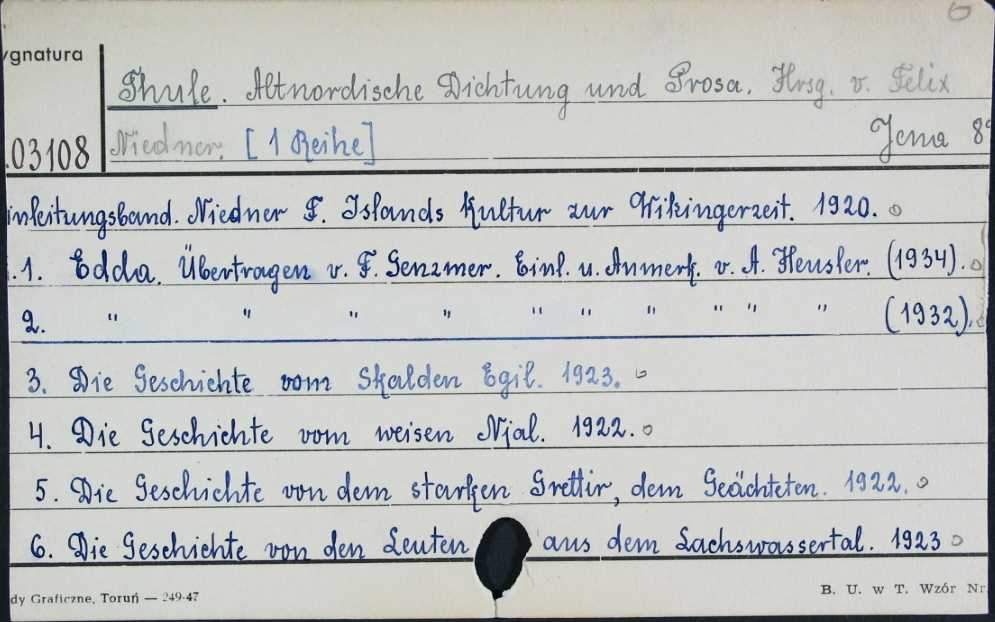 6
ygnatura
Thule. Altnordische Dichtung und Prosa. Hrsg. v. Felix
.03108 Niedner. [1 Reihe] Jena 8°
inleitungsband. Niedner F. Islands Kultur zur Wikingerzeit. 1920.
.1. Edda. Übertragen v. F. Genzmer. Einl. u. Anmerk. v. A. Heusler. (1934).
2. " " " " " " " " " " (1932).
3. Die Geschichte vom Skalden Egil. 1923.
4. Die Geschichte vom weisen Njal. 1922.
5. Die Geschichte von dem starken Grettir, dem Geächteten. 1922.
6. Die Geschichte von den Leuten aus dem Lachswassertal. 1923
dy Graficzne, Toruń — 249-47 B. U. w T. Wzór Nr.